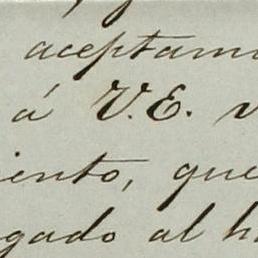 aceptam
á V.E.
iento, que
gado al h